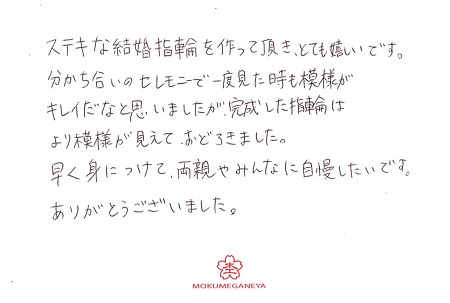 ステキな結婚指輪を作って頂き、とても嬉しいです。
分かち合いのセレモニーで一度見た時も模様が
キレイだなと思いましたが、完成した指輪は
より模様が見えて、おどろきました。
早く身につけて、両親やみんなに自慢したいです。
ありがとうございました。
杢
MOKUMEGANEYA